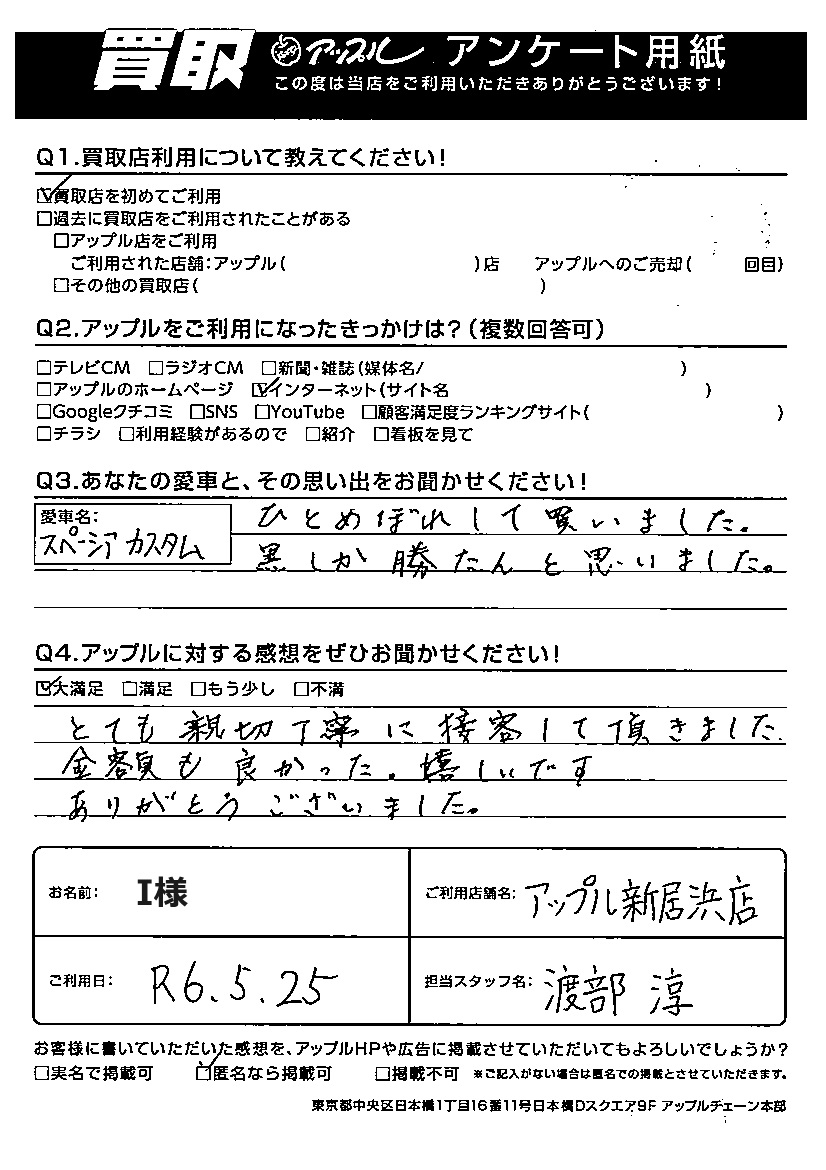 買取 アップル アンケート用紙
この度は当店をご利用いただきありがとうございます!
Q1.買取店利用について教えてください!
☑買取店を初めてご利用
□過去に買取店をご利用されたことがある
□アップル店をご利用
ご利用された店舗:アップル( )店 アップルへのご売却( 回目)
□その他の買取店( )
Q2.アップルをご利用になったきっかけは?(複数回答可)
□テレビCM □ラジオCM □新聞・雑誌(媒体名/ )
□アップルのホームページ ☑インターネット(サイト名 )
□Googleクチコミ □SNS □YouTube □顧客満足度ランキングサイト( )
□チラシ □利用経験があるので □紹介 □看板を見て
Q3.あなたの愛車と、その思い出をお聞かせください!
愛車名:
スペーシア カスタム
ひとめぼれして買いました。
黒しか勝たんと思いました。
Q4.アップルに対する感想をぜひお聞かせください!
☑大満足 □満足 □もう少し □不満
とても親切丁寧に接客して頂きました
金額も良かった。嬉しいです
ありがとうございました。
お名前: I様
ご利用店舗名: アップル新居浜店
ご利用日: R6.5.25
担当スタッフ名: 渡部 淳
お客様に書いていただいた感想を、アップルHPや広告に掲載させていただいてもよろしいでしょうか?
□実名で掲載可 ☑匿名なら掲載可 □掲載不可 ※ご記入がない場合は匿名での掲載とさせていただきます。
東京都中央区日本橋1丁目16番11号日本橋Dスクエア9F アップルチェーン本部